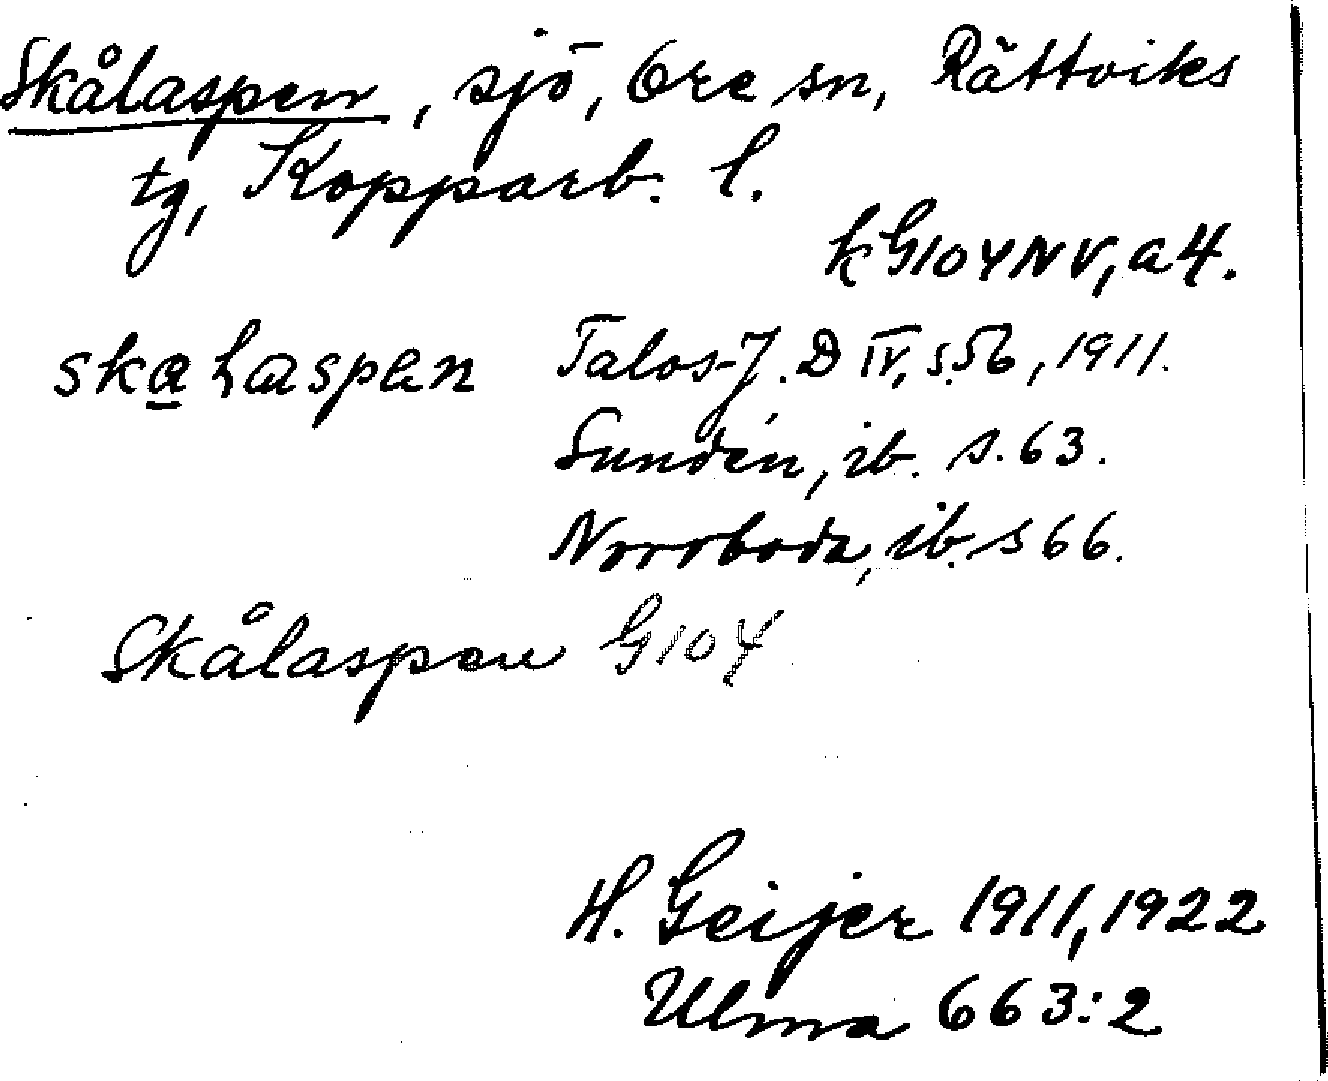 Skålaspen, sjö, Ore sn, Rättviks
tg, Kopparb. l.
k G104NV, a4.
skalaspen Talos-J. D IV, s.56, 1911.
Sundén, ib. s.63.
Norrboda, ib. s 66.
Skålaspen G104
H. Geijer 1911, 1922
Ulma 663:2